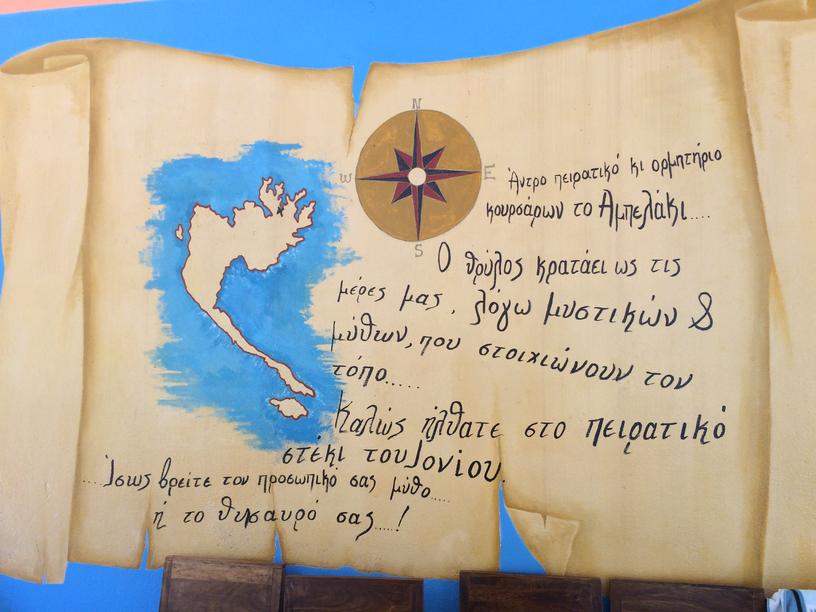 N
W
E
S
Άντρο πειρατικό κι ορμητήριο
κουρσάρων το Αμπελάκι....
Ο θρύλος κρατάει ως τις
μέρες μας, λόγω μυστικών &
μύθων, που στοιχιώνουν τον
τόπο.....
Καλώς ήλθατε στο πειρατικό
στέκι του Ιονίου.
....Ίσως βρείτε τον προσωπικό σας μύθο.....
ή το θησαυρό σας.....!